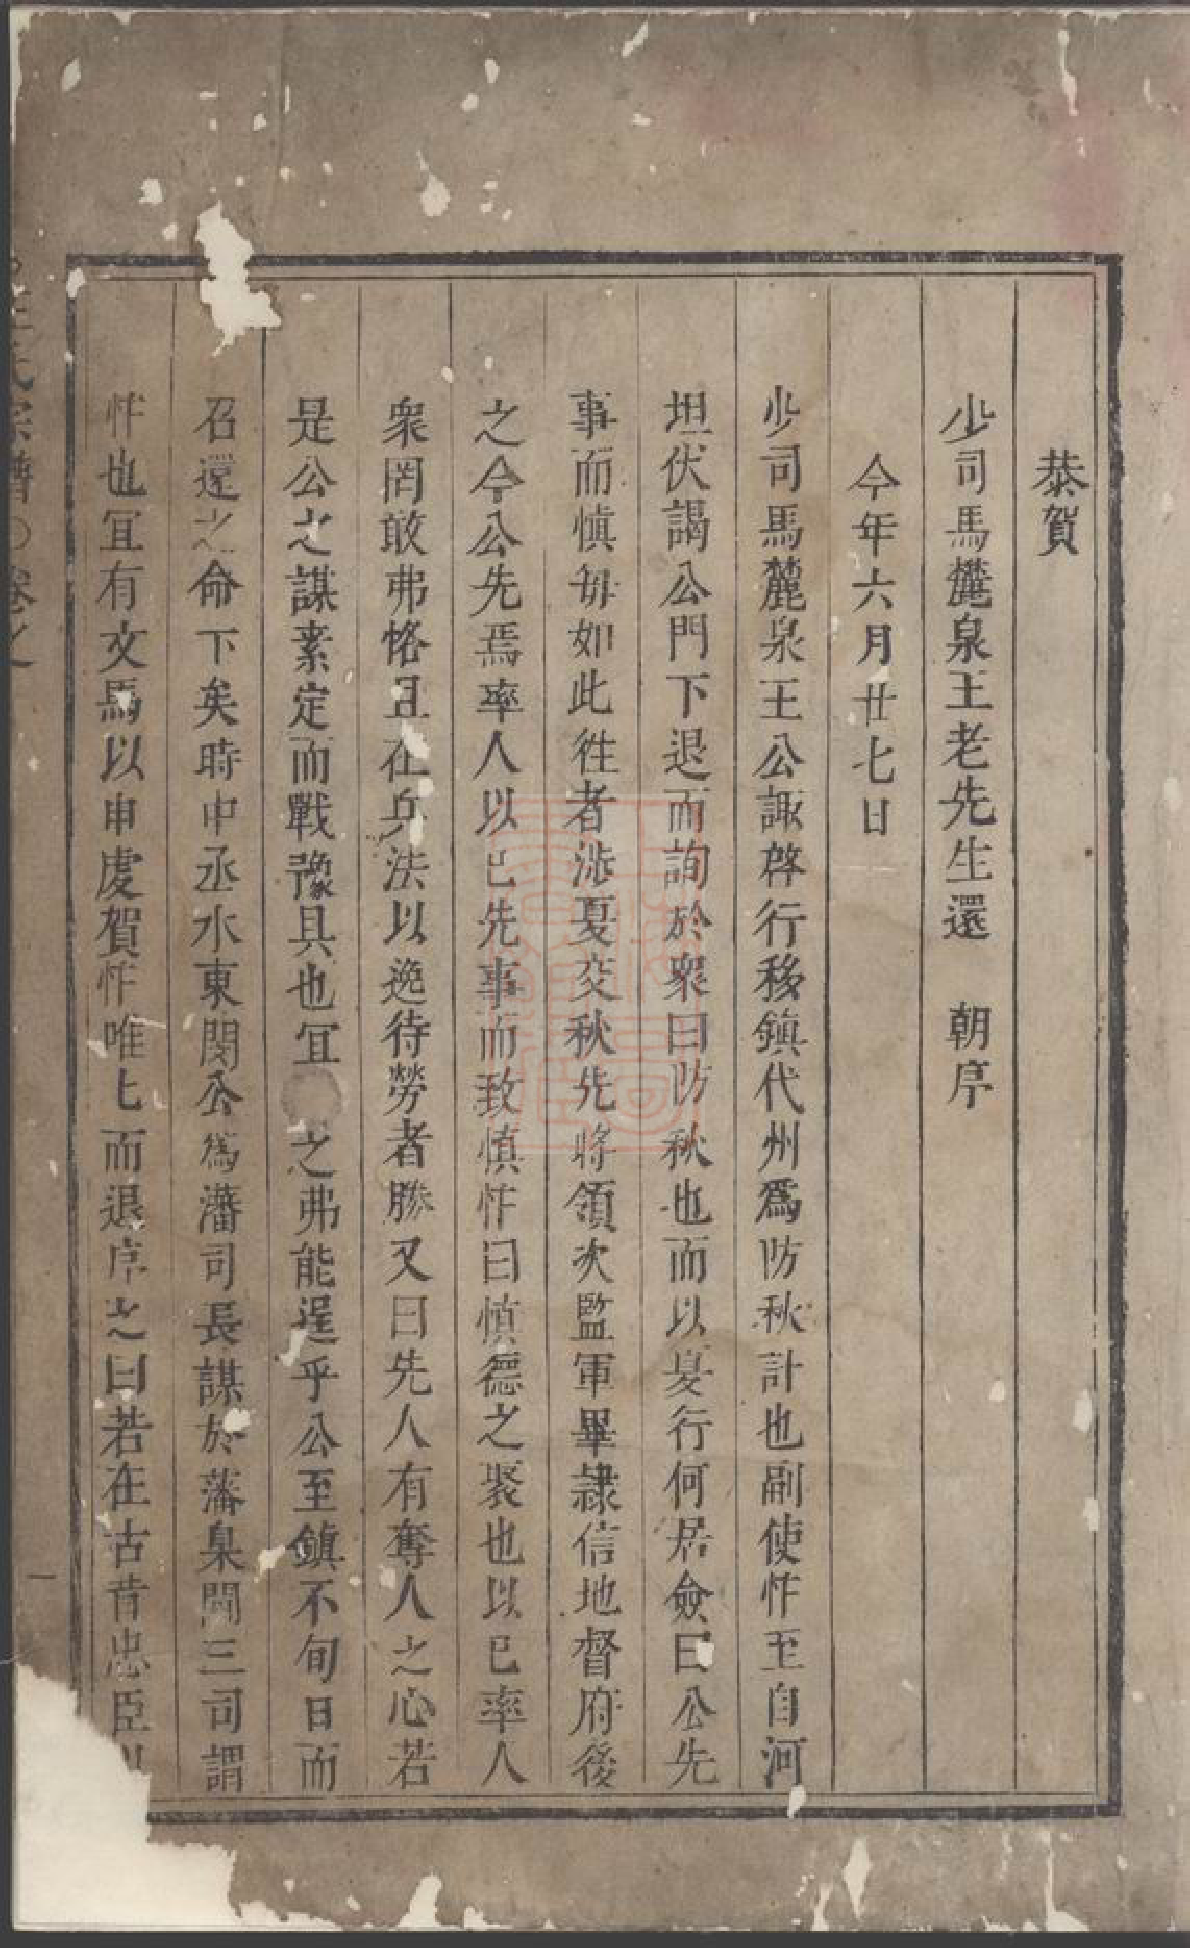 恭賀
少司馬麓泉王老先生還　朝序
今年六月廿七日
少司馬麓泉王公諏啓行移鎮代州爲防秋計也副使忤至自河
坦伏謁公門下退而詢於衆曰防秋也而以夏行何居僉曰公先
事而慎毋如此徃者涉夏交秋先將領次監軍畢隷信地督府後
之今公先焉率人以已先事而致慎忤曰慎德之聚也以已率人
衆罔敢弗恪且在兵法以逸待勞者勝又曰先人有奪人之心若
是公之謀素定而戰豫具也宜之弗能逞乎公至鎮不旬日而
召還之命下矣時中丞水東閔公爲藩司長謀於藩臬閫三司謂
忤也宜有文焉以申虔賀忤唯七而退序之曰若在古昔忠臣
王氏宗譜○卷之
一